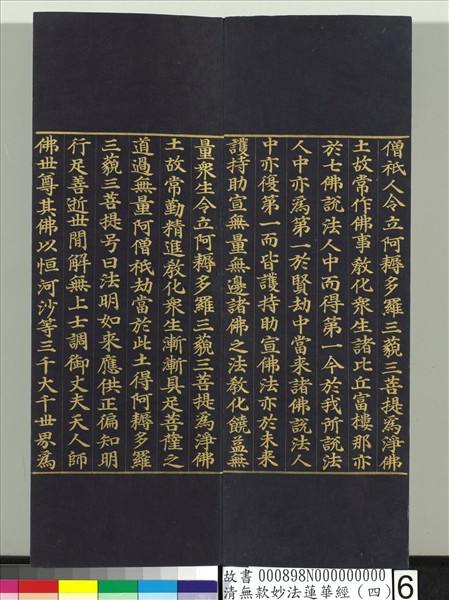 僧祇人令立阿耨多羅三藐三菩提為淨佛
土故常作佛事教化衆生諸比丘富樓那亦
於七佛說法人中而得第一今於我所說法
人中亦為第一於賢劫中當來諸佛說法人
中亦復第一而皆護持助宣佛法亦於未來
護持助宣無量無邊諸佛之法教化饒益無
量衆生令立阿耨多羅三藐三菩提為淨佛
土故常勤精進教化衆生漸漸具足菩薩之
道過無量阿僧祇劫當於此土得阿耨多羅
三藐三菩提号曰法明如來應供正徧知明
行足善逝世間解無上士調御丈夫天人師
佛世尊其佛以恒河沙等三千大千世界為
故書 000898N000000000
清無款妙法蓮華經(四)
6